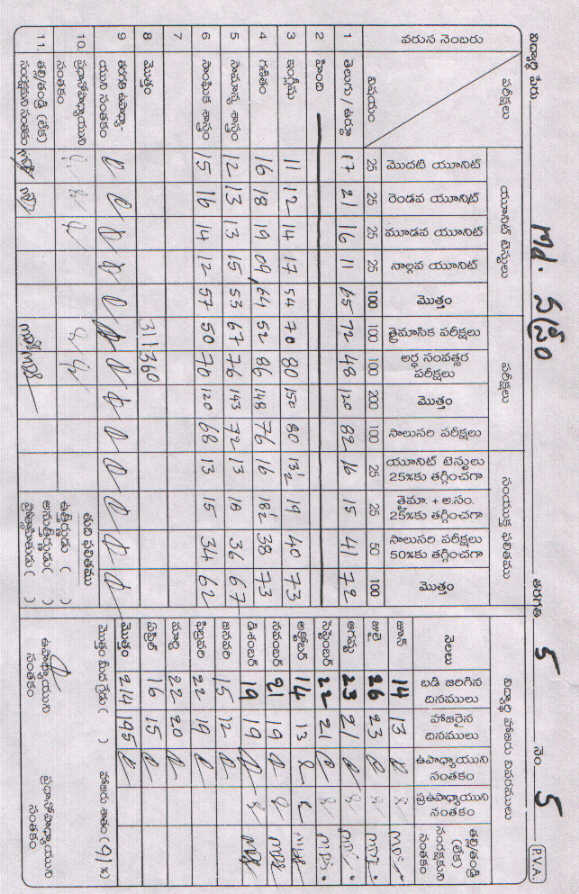 విద్యార్థి పేరు Md. తరగతి 5 నెం. 5 P.V.A.
వరుస నెంబరు పరీక్షలు విషయం యూనిట్ టెస్టులు పరీక్షలు సంయుక్త ఫలితము
మొదటి యూనిట్ రెండవ యూనిట్ మూడవ యూనిట్ నాల్గవ యూనిట్ మొత్తం త్రైమాసిక పరీక్షలు అర్ధ సంవత్సర పరీక్షలు మొత్తం సాలుసరి పరీక్షలు యూనిట్ టెస్టులు 25%కు తగ్గించగా త్రైమా. + అ.సం. 25%కు తగ్గించగా సాలుసరి పరీక్షలు 50%కు తగ్గించగా మొత్తం
25 25 25 25 100 100 100 200 100 25 25 50 100
1 తెలుగు / ఉర్దూ 17 21 16 11 65 72 48 120 82 16 15 41 72
2 హింది
3 ఇంగ్లీషు 11 12 14 17 54 70 80 150 80 13½ 19 40 73
4 గణితం 16 18 19 09 64 52 86 148 76 16 18½ 38 73
5 సామాన్య శాస్త్రం 12 13 13 15 53 67 76 143 72 13 18 36 67
6 సాంఘిక శాస్త్రం 15 16 14 12 57 50 70 120 68 13 15 34 62
7
8 మొత్తం 311 360
9 తరగతి ఉపాధ్యాయుని సంతకం
10. ప్రధానోపాధ్యాయుని సంతకం
11. తల్లి/తండ్రి (లేక) సంరక్షకుని సంతకం
తుది ఫలితము
ఉత్తీర్ణుడు ( )
అనుత్తీర్ణుడు ( )
ప్రోత్సాహితుడు ( )
విద్యార్థి హాజరు వివరములు
నెలలు బడి జరిగిన దినములు హాజరైన దినములు ఉపాధ్యాయుని సంతకం ప్రఉపాధ్యాయుని సంతకం తల్లి/తండ్రి (లేక) సంరక్షకుని సంతకం
జూన్ 14 13
జులై 26 23
ఆగష్టు 23 21
సెప్టెంబర్ 22 21
అక్టోబర్ 14 13
నవంబర్ 21 19
డిశంబర్ 19 19
జనవరి 15 12
ఫిబ్రవరి 22 19
మార్చి 22 20
ఏప్రిల్ 16 15
మొత్తం 214 195
మొత్తం మీద గ్రేడు ( ) హాజరు శాతం (91%)
ఉపాధ్యాయుని సంతకం ప్రధానోపాధ్యాయుని సంతకం